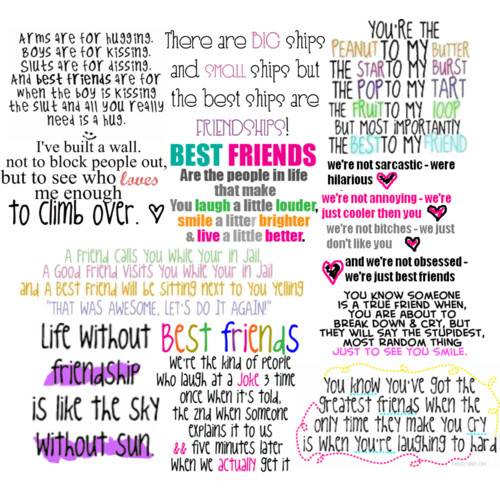 Arms are for hugging.
Boys are for kissing.
Sluts are for dissing.
And best friends are for
when the boy is kissing
the slut and all you really
need is a hug.
There are BIG ships
and SMALL ships but
the best ships are
FRIENDSHIPS!
YOU'RE THE
PEANUT TO MY BUTTER
THE STAR TO MY BURST
THE POP TO MY TART
THE FRUIT TO MY LOOP
BUT MOST IMPORTANTLY
THE BEST TO MY FRIEND
I've built a wall.
not to block people out,
but to see who loves
me enough
to climb over.
BEST FRIENDS
Are the people in life
that make
You laugh a little louder,
smile a litter brighter
& live a little better.
we're not sarcastic - were
hilarious
we're not annoying - we're
just cooler then you
we're not bitches - we just
don't like you
and we're not obsessed -
we're just best friends
A Friend calls you while your in Jail,
A Good Friend visits you while your in Jail
and A Best Friend will be sitting next to you yelling
"THAT WAS AWESOME, LET'S DO IT AGAIN!"
YOU KNOW SOMEONE
IS A TRUE FRIEND WHEN,
YOU ARE ABOUT TO
BREAK DOWN & CRY, BUT
THEY WILL SAY THE STUPIDEST,
MOST RANDOM THING
JUST TO SEE YOU SMILE.
Life without
friendship
is like the sky
without sun.
Best friends
We're the kind of people
who laugh at a joke 3 time
once when it's told,
the 2nd when someone
explains it to us
&& five minutes later
when we actually get it
You know you've got the
greatest friends when the
only time they make you cry
is when you're laughing to hard